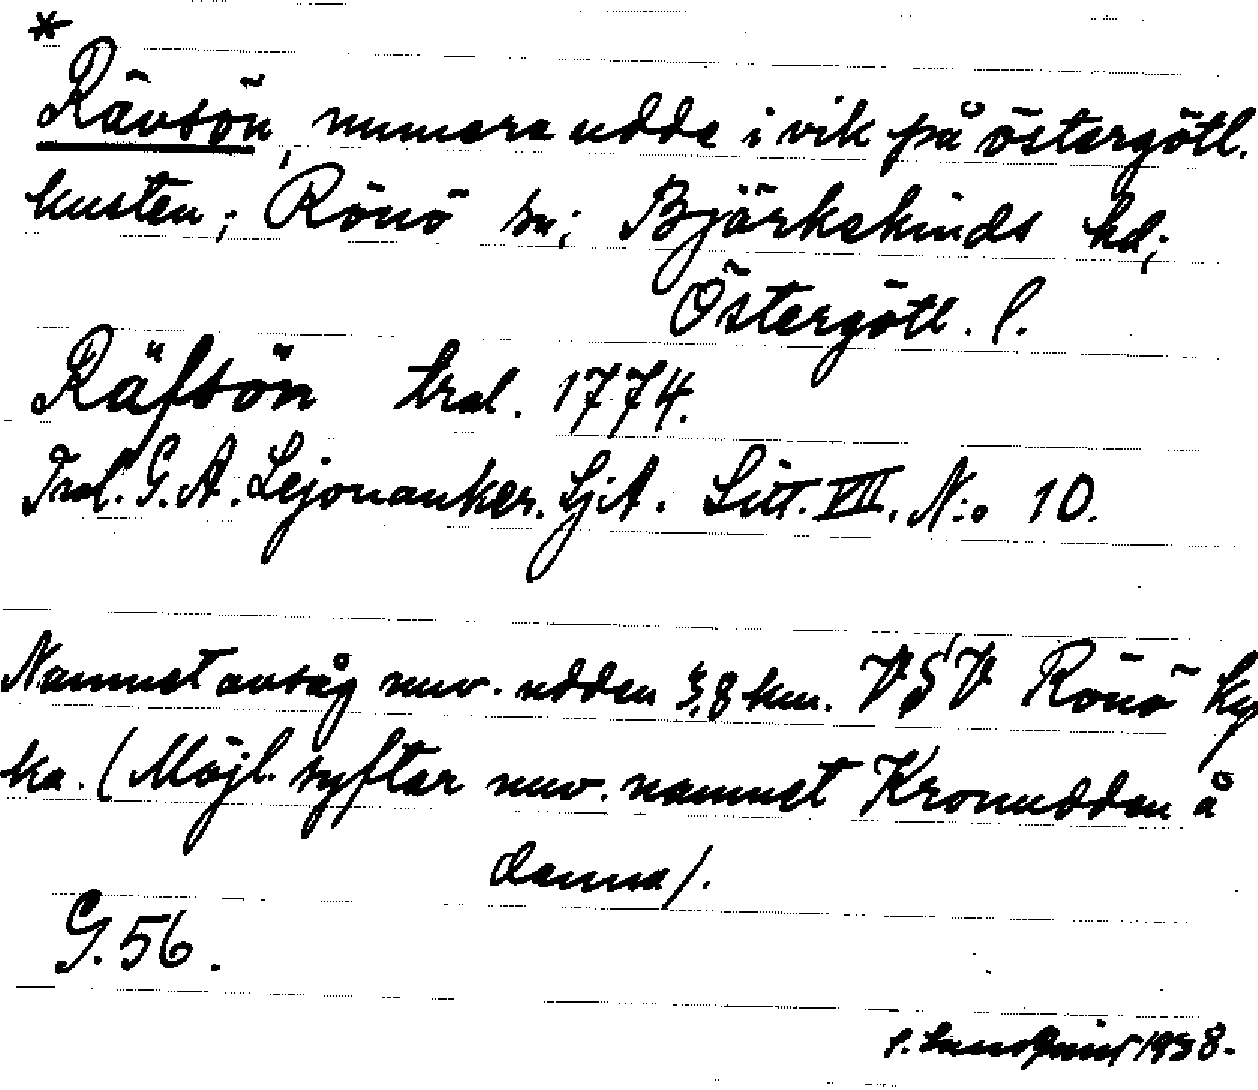 *
Rävsön, numera udde i vik på östergötl.
kusten; Rönö sn; Björkekinds hd;
Östergötl. l.
Räfsön tral. 1774.
Tral. G. A. Lejonanker. SjA. Litt. VII. N:o 10.
Namnet avsåg nuv. udden 3,8 km. VSV Rönö kyr
ka. (Möjl. syftar nuv. namnet Kronudden å
denna).
G. 56.
1938.